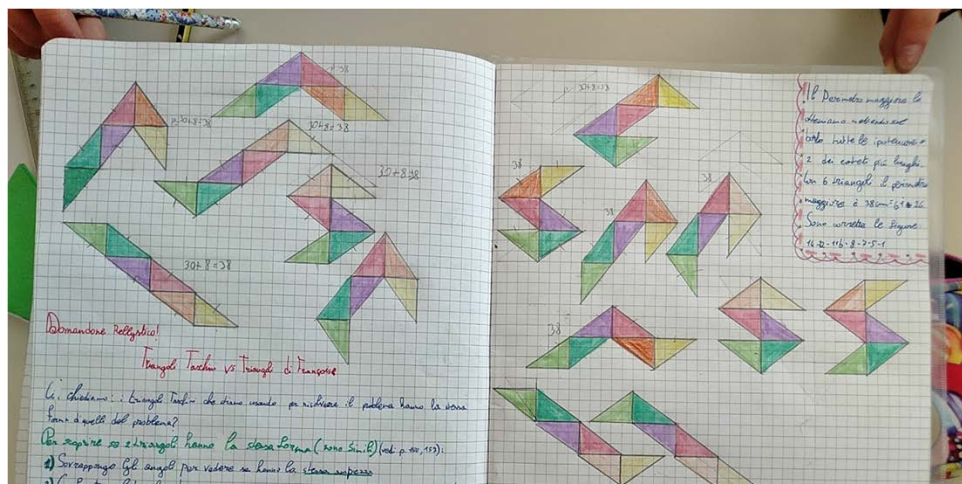 P=38
P=30+8=38
30+8=38
30+8=38
30+8=38
Domandone Rellystico!
Triangoli Taschin vs Triangoli di Françoise
Ci chiediamo: i triangoli Taschin che stiamo usando per risolvere il problema hanno la stessa
forma di quelli del problema?
Per scoprire se 2 triangoli hanno la stessa forma (sono simili) (vedi p. 152, 153):
1) Sovrappongo gli angoli per vedere se hanno la stessa ampiezza
30+8=38
38
38
38
38
Il Perimetro maggiore lo
otteniamo mettendo
tutte le ipotenuse e
2 dei cateti più lunghi.
Con 6 triangoli il perimetro
maggiore è 38cm
Sono corrette le figure: